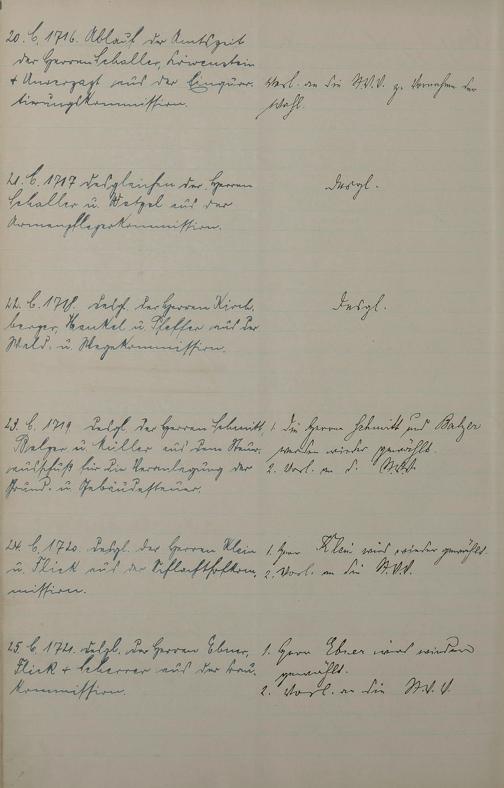 20. C. 1716. Ablauf der Amtszeit
der Herren Schaller, Löwenstein
+ Unverzagt aus der Einquar-
tierungskommission.
Vorl. an die St.V.V. z. Vornahme der
Wahl.
21. C. 1717 desgleichen der Herren
Schaller u. Wetzel aus der
Armenpflegerkommission.
Desgl.
22. C. 1718. desgl. der Herren Kirch-
berger, Henkel u. Pfeffer aus der
Wald- u. Wegekommission.
Desgl.
23. C. 1719 desgl. der Herren Schmitt,
Balzer u. Müller aus dem Steuer-
ausschuß für die Veranlagung der
Grund- u. Gebäudesteuer.
1. die Herrn Schmitt und Balzer
werden wieder gewählt.
2. Vorl. an d. St.V.V.
24. C. 1720. desgl. der Herren Klein
u. Flick aus der Schlachthofkom-
mission.
1. Herr Klein wird wieder gewählt.
2. Vorl. an die St.V.V.
25 C. 1721. desgl. der Herren Ebner,
Flick + Scherrer aus der Bau-
kommission.
1. Herr Ebner wird wieder
gewählt.
2. Vorl. an die St.V.V.